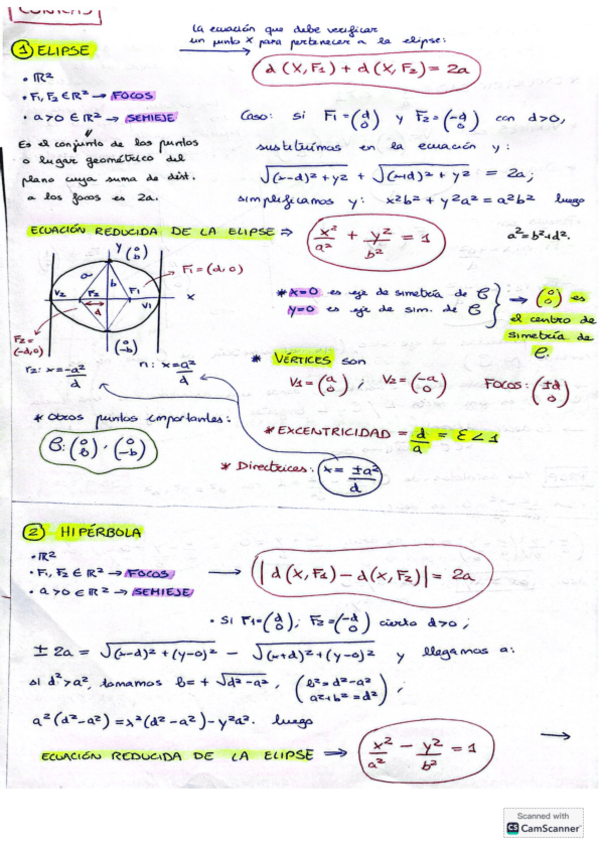 CONICAS
La ecuación que debe verificar
un punto X para pertenecer a la elipse:
① ELIPSE
d(X,F₁) + d(X,F₂) = 2a
• ℝ²
• F₁, F₂ ∈ ℝ² → FOCOS
• a>0 ∈ ℝ² → SEMIEJE
Es el conjunto de los puntos
o lugar geométrico del
plano cuya suma de dist.
a los focos es 2a.
Caso: si F₁=(d 0) y F₂=(-d 0) con d>0,
sustituimos en la ecuación y:
√(x-d)²+y² + √(x+d)²+y² = 2a;
simplificamos y: x²b² + y²a² = a²b² luego
ECUACIÓN REDUCIDA DE LA ELIPSE ⇒ x²/a² + y²/b² = 1
a²=b²+d².
y (0 b)
a
b
F₁=(d,0)
V₂ F₂ F₁ V₁ x
d
F₂= (-d,0)
(0 -b)
r₂: x=-a²/d
r₁: x=a²/d
* x=0 es eje de simetría de C
y=0 es eje de sim. de C
→ (0 0) es
el centro de
simetría de
C.
* VÉRTICES son
V₁=(a 0); V₂=(-a 0) FOCOS: (±d 0)
* Otros puntos importantes:
B:(0 b), (0 -b)
* EXCENTRICIDAD = d/a = ε<1
* Directrices: x= ±a²/d
② HIPÉRBOLA
• ℝ²
• F₁, F₂ ∈ ℝ² → FOCOS
• a>0 ∈ ℝ² → SEMIEJE
→ |d(X,F₁) - d(X,F₂)| = 2a
• Si F₁=(d 0); F₂=(-d 0) cierto d>0;
± 2a = √(x-d)²+(y-0)² - √(x+d)²+(y-0)² y llegamos a:
si d²>a², tomamos b=+√d²-a², (b²=d²-a² a²+b²=d²);
a²(d²-a²)=x²(d²-a²)-y²a². luego
ECUACIÓN REDUCIDA DE LA ELIPSE → x²/a² - y²/b² = 1 →
Scanned with
CS CamScanner